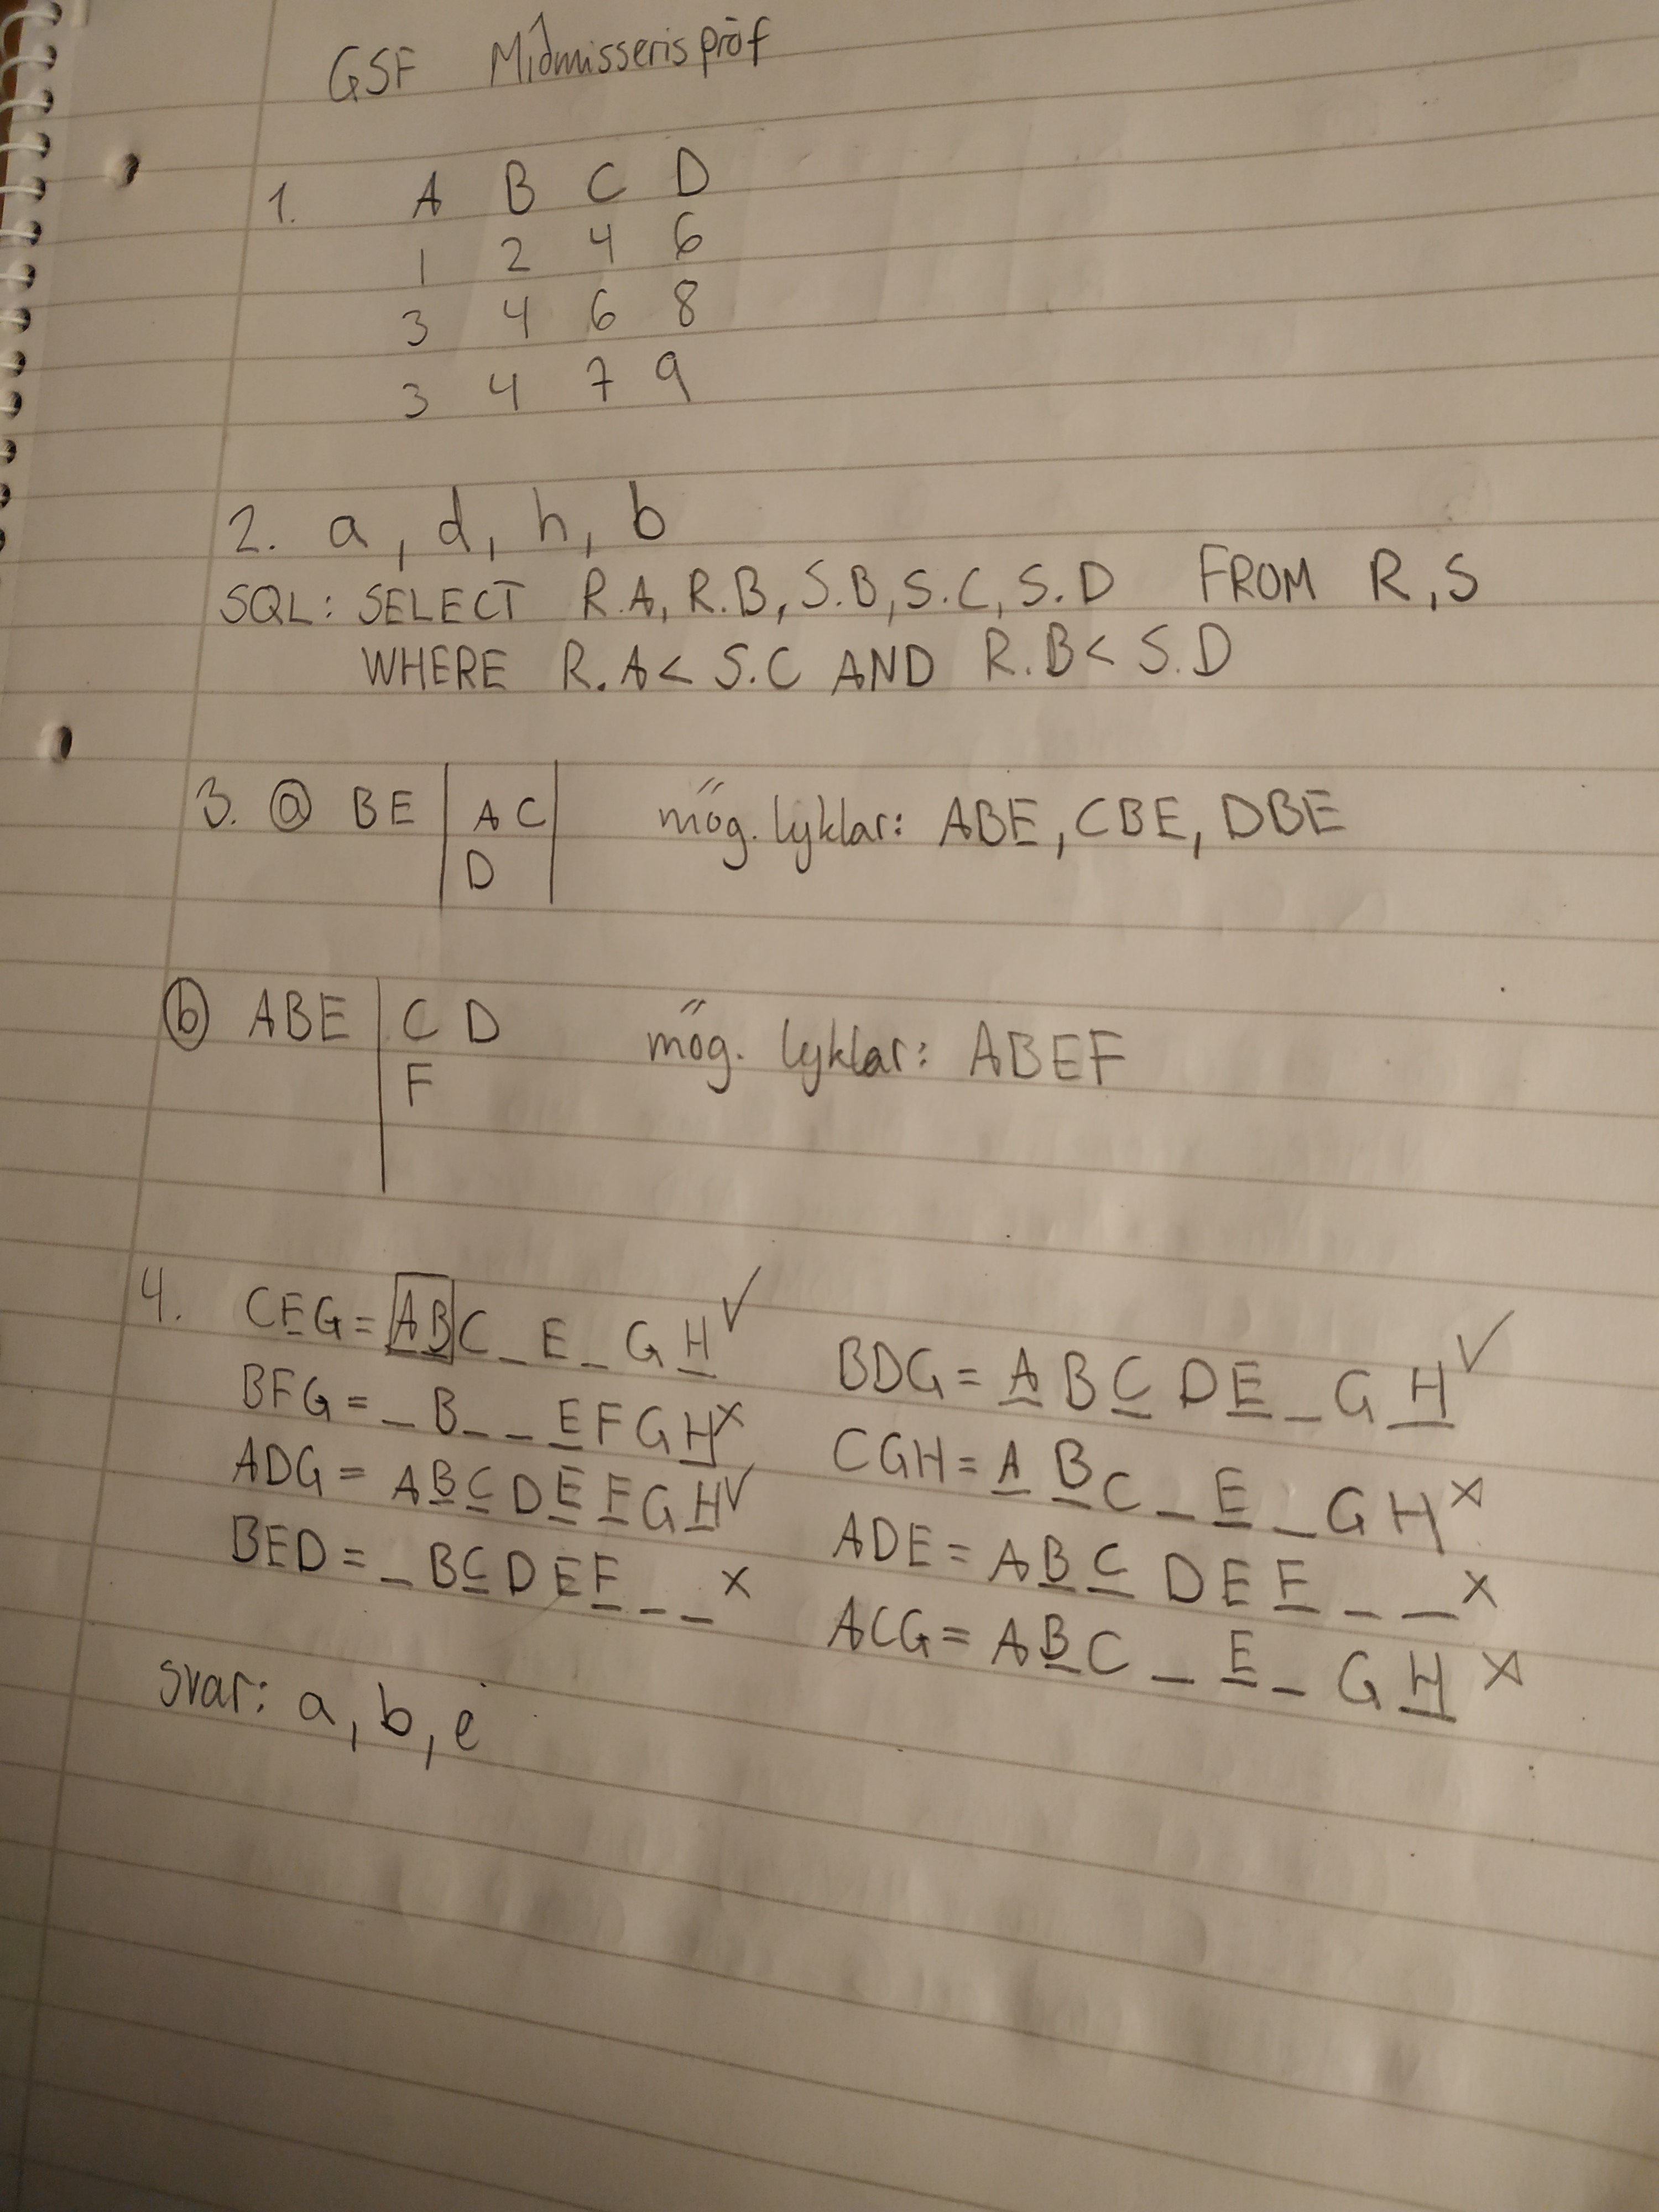 GSF Miðmisserispróf
1. A B C D
1 2 4 6
3 4 6 8
3 4 7 9
2. a, d, h, b
SQL: SELECT R.A, R.B, S.B, S.C, S.D FROM R,S
WHERE R.A < S.C AND R.B < S.D
3. ⓐ BE | A C | mög. lyklar: ABE, CBE, DBE
D
ⓑ ABE | C D mög. lyklar: ABEF
F
4. CEG = ABC _ E _ G H ✓
BFG = _ B _ _ E F G H x
ADG = A B C D E F G H ✓
BED = _ B C D E F _ _ x
BDG = A B C D E _ G H ✓
CGH = A B C _ E _ G H x
ADE = A B C D E F _ _ x
ACG = A B C _ E _ G H x
svar: a, b, e